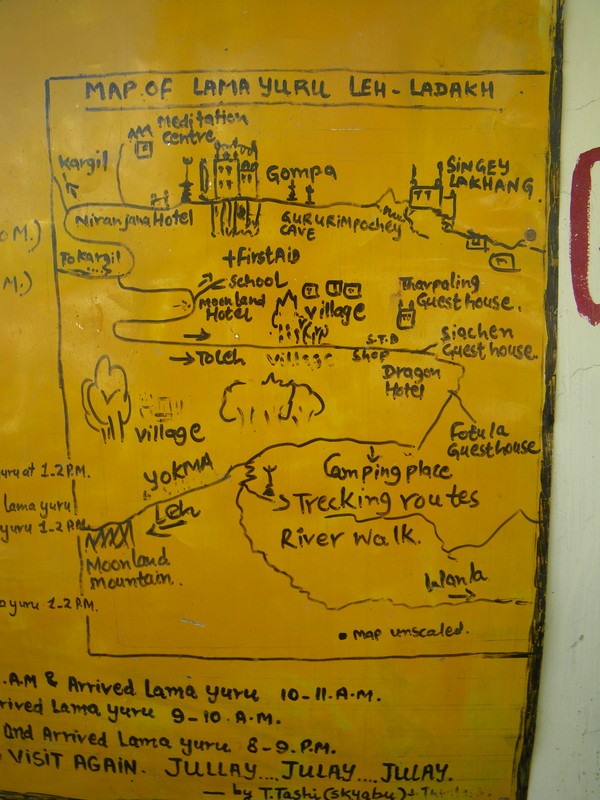 MAP OF LAMA YURU LEH-LADAKH
Meditation
Centre
Kargil
Gompa
SINGEY
LAKHANG
Niranjana Hotel
GURURIMPOCHEY
CAVE
O M.)
To Kargil
+FirstAid
M.)
School
Moonland
Hotel
village
Tharpaling
Guest house.
S.T.D
Shop
Siachen
Guest house.
To Leh
village
Dragon
Hotel
village
Fotula
Guest house
YOKMA
Camping place
uru at 1-2 P.M.
Trecking routes
lama yuru
Leh
yuru 1-2 P.M.
River Walk.
Moonland
mountain.
Wanla
yuru 1-2 P.M.
• Map unscaled.
.A.M & Arrived Lama yuru 10-11.A.M.
rrived Lama yuru 9-10.A.M.
and Arrived Lama yuru 8-9.P.M.
VISIT AGAIN. JULLAY.... JULAY.... JULAY.
— by T.Tashi (Skyabu)